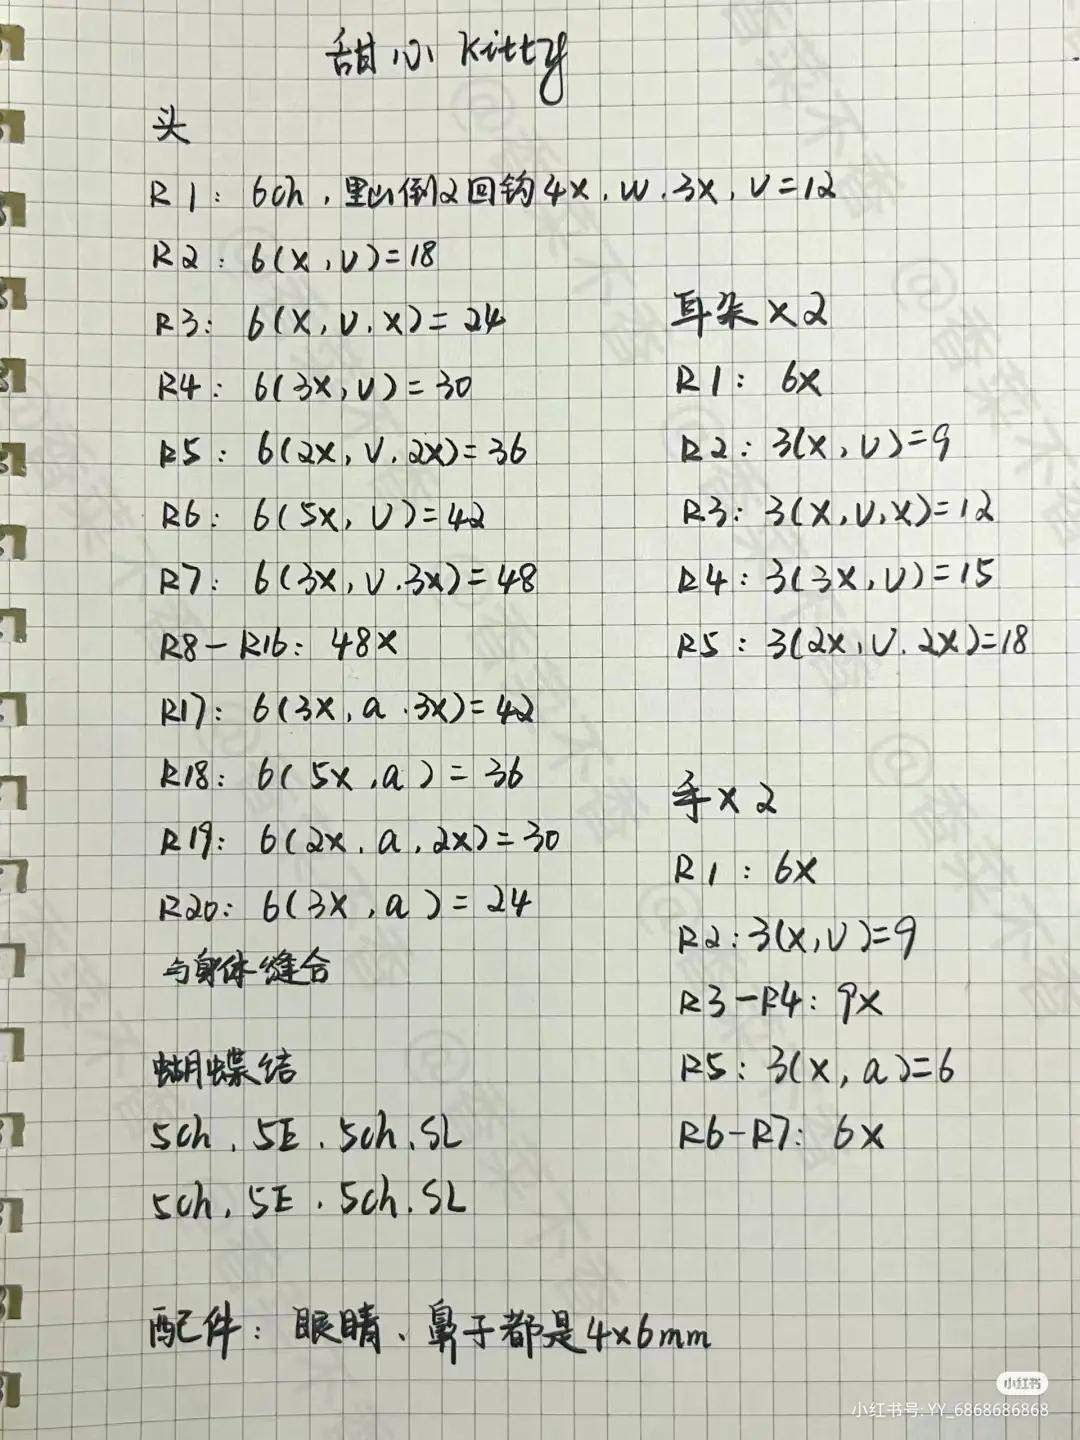 甜心 Kitty
头
R1：6ch，里山倒2回钩4x．w．3x，V=12
R2：6(x，V)=18
R3：6(x，V．x)=24
R4：6(3x，V)=30
R5：6(2x，V．2x)=36
R6：6(5x，V)=42
R7：6(3x，V．3x)=48
R8—R16：48x
R17：6(3x，a．3x)=42
R18：6(5x，a)=36
R19：6(2x．a，2x)=30
R20：6(3x，a)=24
与身体缝合
蝴蝶结
5ch．5E．5ch．SL
5ch．5E．5ch．SL
耳朵×2
R1：6x
R2：3(x，V)=9
R3：3(x，V，x)=12
R4：3(3x，V)=15
R5：3(2x，V．2x)=18
手×2
R1：6x
R2：3(x，V)=9
R3—R4：9x
R5：3(x，a)=6
R6—R7：6x
配件：眼睛、鼻子都是4×6mm
@香菜不香
小红书
小红书号:YY_6868686868